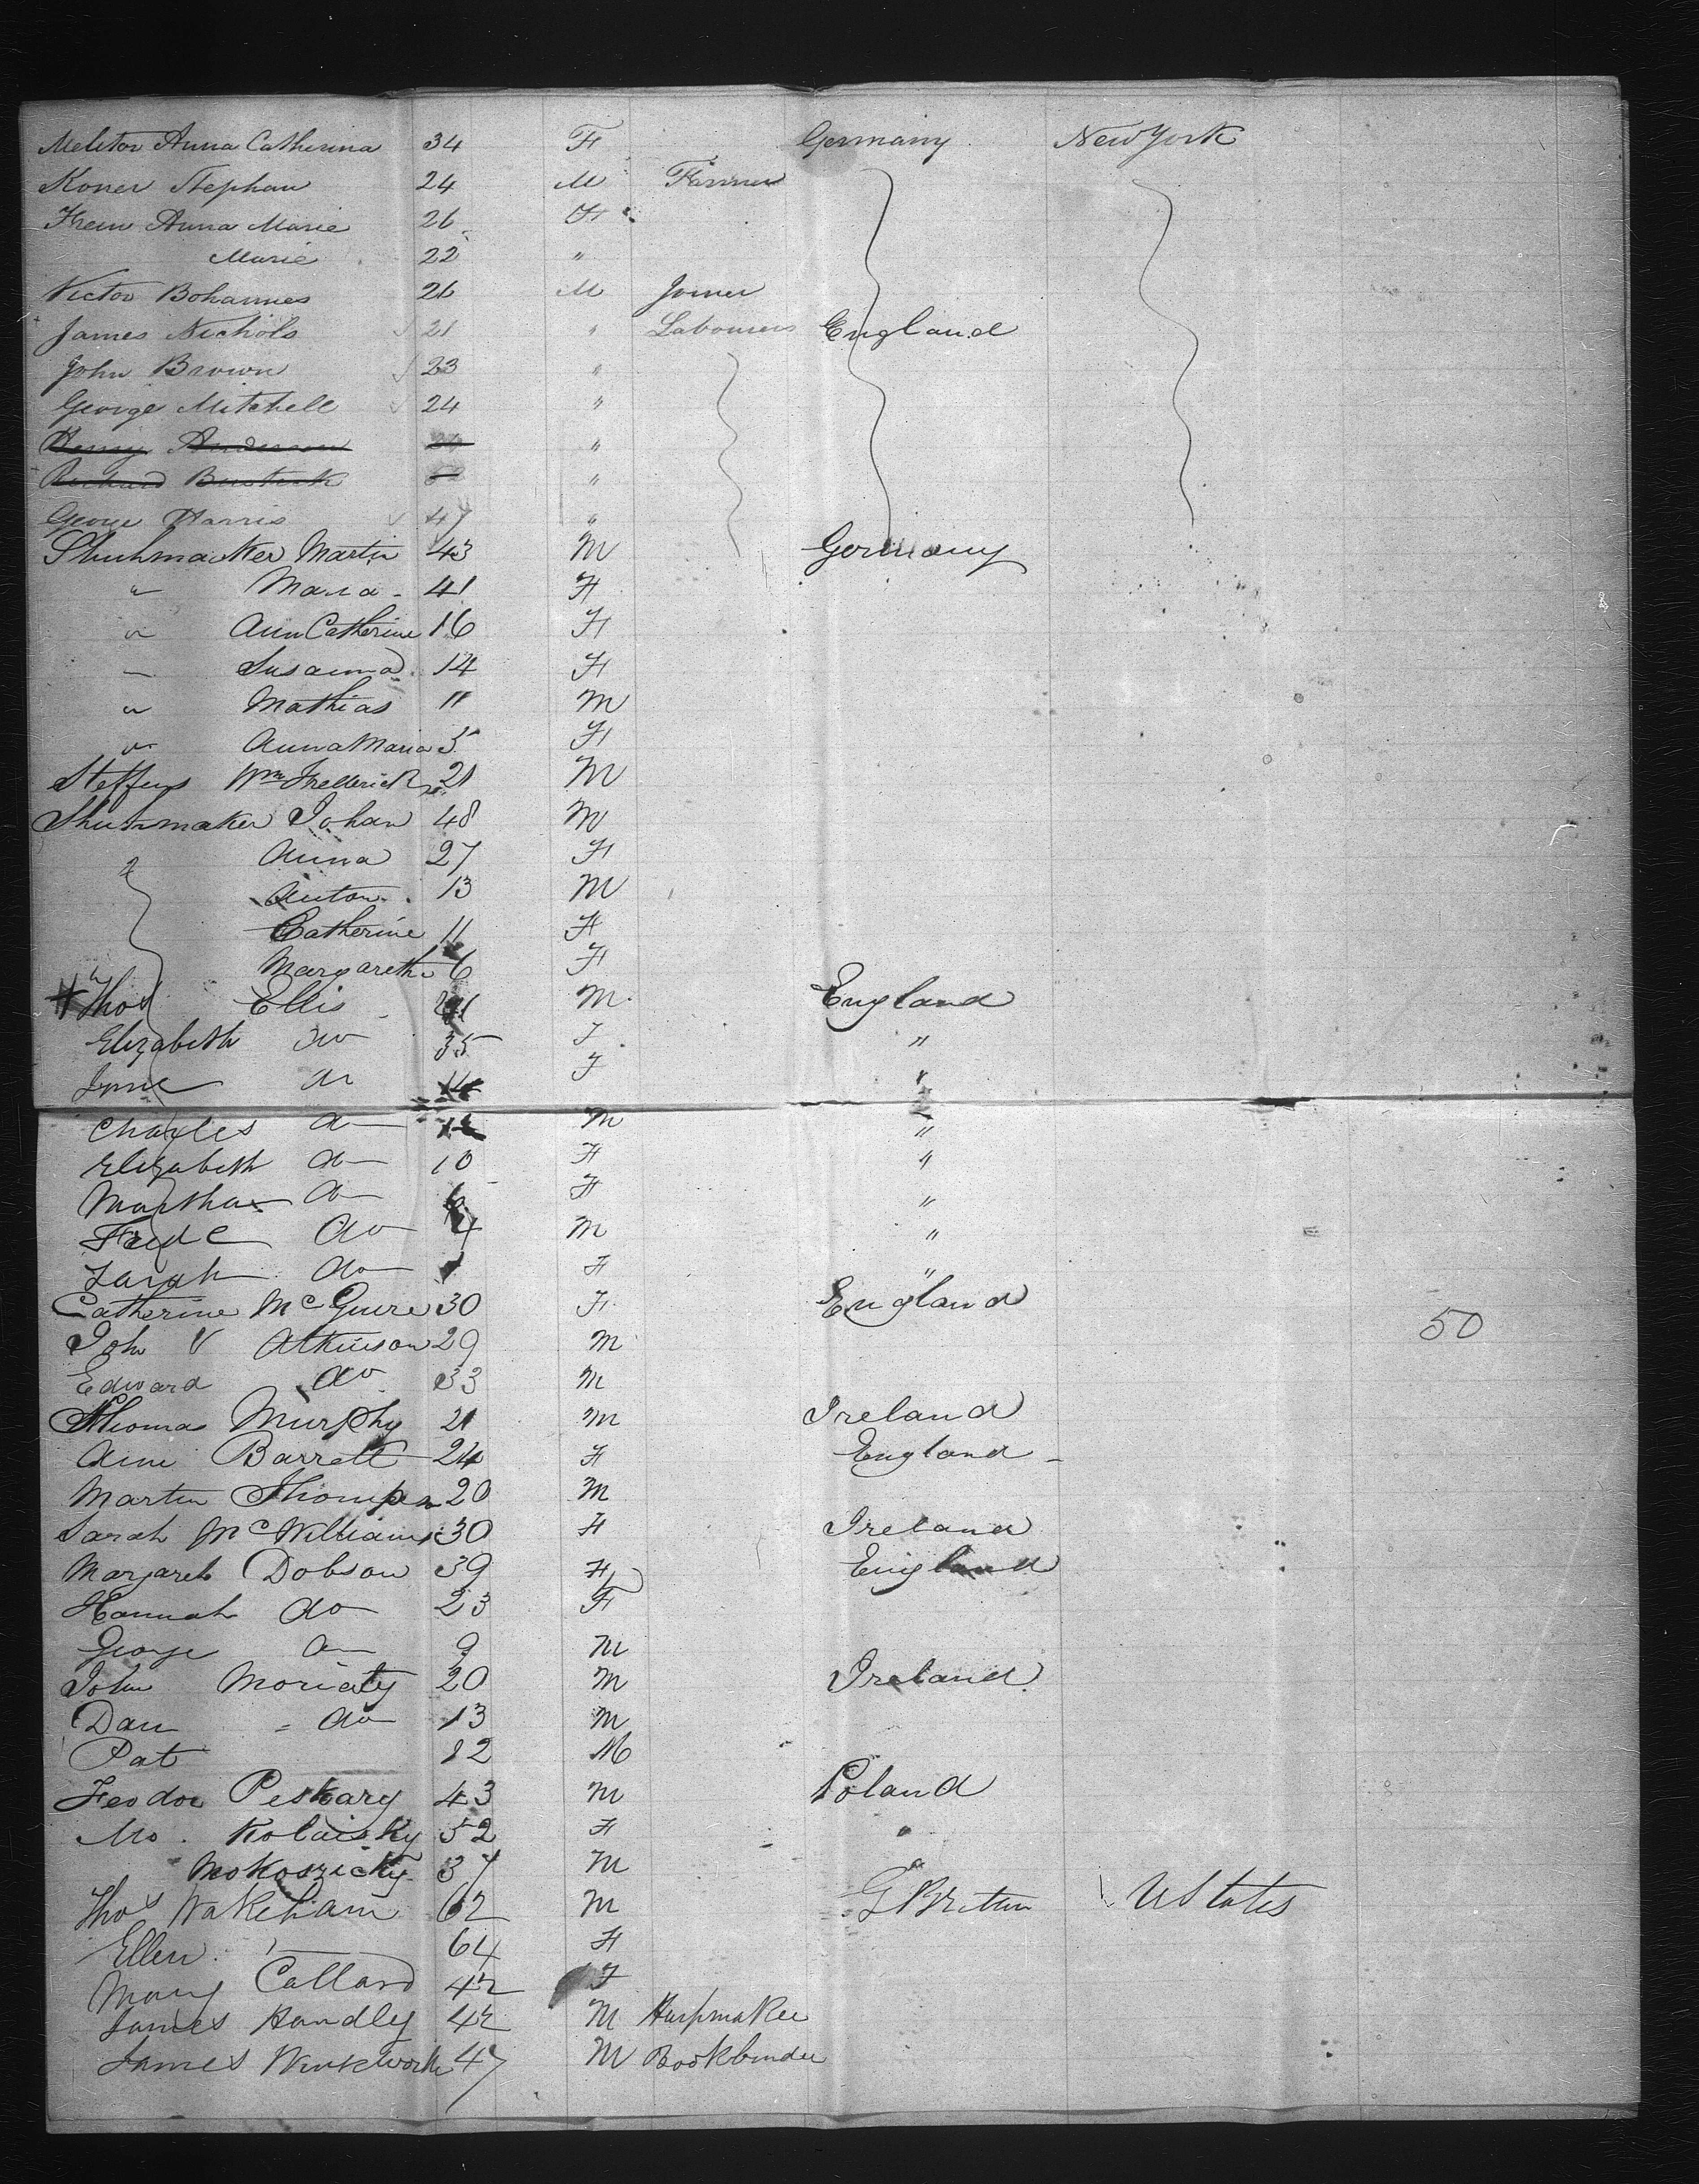 Melitor Anna Catherina 34 F Germany New York
Koner Stephan 24 M Farmer
Frem Anna Marie 26 F
Marie 22 "
Victor Bohannes 26 M Joiner
James Nichols 21 " Labourers England
John Brown 23 "
George Mitchell 24 "
Henry Anderson "
Richard "
George Harris 47 "
Shuhmacker Martin 43 M Germany
" Maria 41 F
" Ann Catherine 16 F
" Susanna 14 F
" Mathias 11 M
" Anna Maria 5 F
Steffens Wm Frederick 21 M
Shuhmaker Johan 48 M
" Anna 27 F
Anton 13 M
Catherine 11 F
Margareth 6 F
Thos Ellis 41 M England
Elizabeth do 35 F "
Jane do 14 F "
Charles do M "
Elizabeth do 10 F "
Martha do F "
Fredc do 4 M "
Sarah do F "
Catherine McGuire 30 F England
Joh V Atkinson 29 M 50
Edward do 33 M
Thomas Murphy 21 M Ireland
Ann Barrett 24 F England
Martin Thompson 20 M
Sarah McWilliams 30 F Ireland
Margaret Dobson 39 F England
Hannah do 23 F
George do 9 M
John Moriaty 20 M Ireland
Dan do 13 M
Pat 12 M
Feodor Peskary 43 M Poland
Mo. Kolaisky 52 F
Mokosricky 37 M
Thos Wakeham 62 M G Brittn U States
Ellen 64 F
Mary Callard 42 F
James Handly 42 M Harpmaker
James Winkworth 47 M Bookbinder